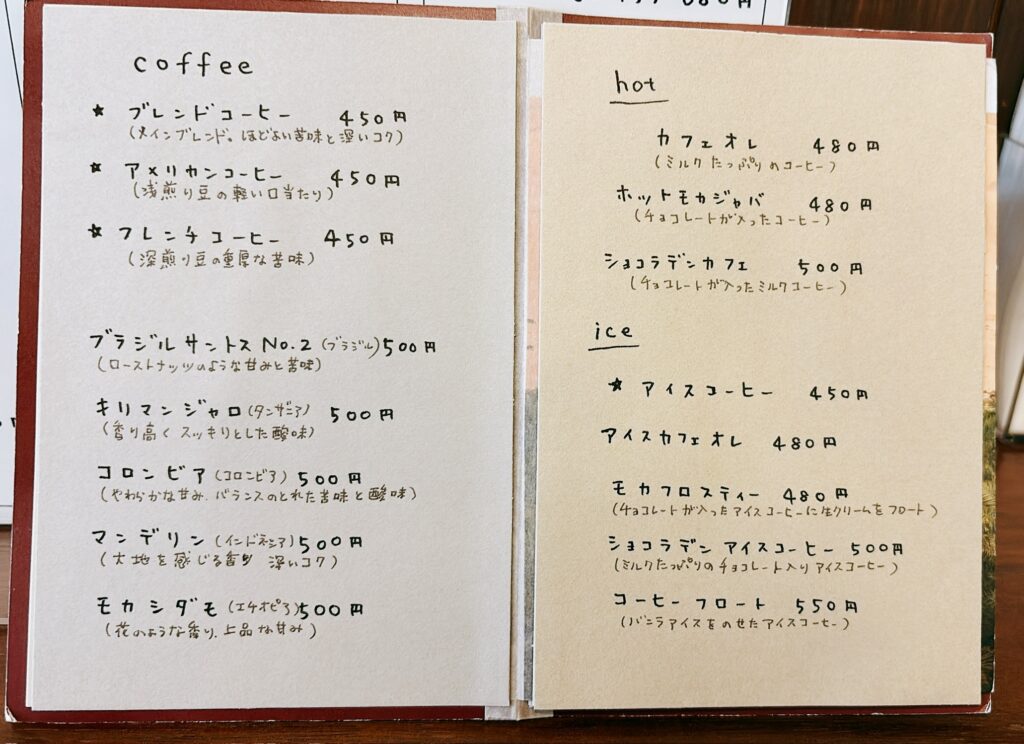 coffee
★ ブレンドコーヒー 450円
(メインブレンド。ほどよい苦味と深いコク)
★ アメリカンコーヒー 450円
(浅煎り豆の軽い口当たり)
★ フレンチコーヒー 450円
(深煎り豆の重厚な苦味)
ブラジルサントスNo.2(ブラジル)500円
(ローストナッツのような甘みと苦味)
キリマンジャロ(タンザニア) 500円
(香り高くスッキリとした酸味)
コロンビア(コロンビア) 500円
(やわらかな甘み.バランスのとれた苦味と酸味)
マンデリン(インドネシア)500円
(大地を感じる香り 深いコク)
モカシダモ(エチオピア)500円
(花のような香り.上品な甘み)
hot
カフェオレ 480円
(ミルクたっぷりのコーヒー)
ホットモカジャバ 480円
(チョコレートが入ったコーヒー)
ショコラデンカフェ 500円
(チョコレートが入ったミルクコーヒー)
ice
★ アイスコーヒー 450円
アイスカフェオレ 480円
モカフロスティー 480円
(チョコレートが入ったアイスコーヒーに生クリームをフロート)
ショコラデン アイスコーヒー 500円
(ミルクたっぷりのチョコレート入りアイスコーヒー)
コーヒーフロート 550円
(バニラアイスをのせたアイスコーヒー)